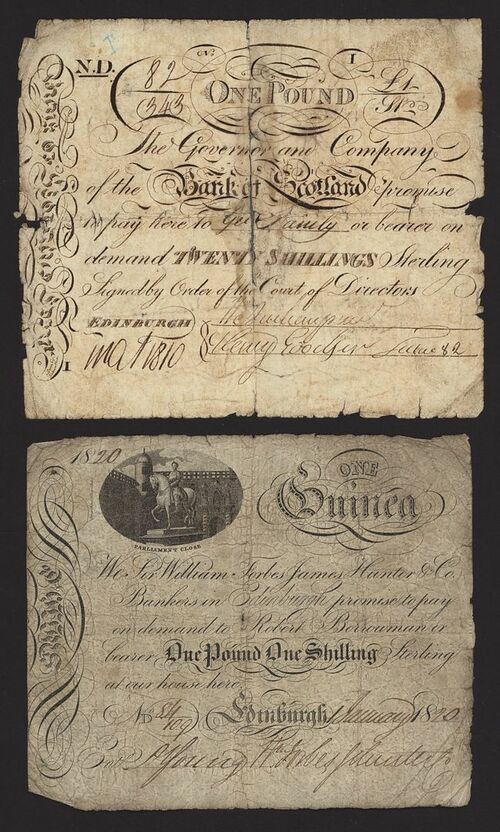 N.D.
82
343
No.
I
ONE POUND
The Governor and Company
of the Bank of Scotland promise
to pay here to or bearer on
demand TWENTY SHILLINGS Sterling
Signed by Order of the Court of Directors
EDINBURGH
1810
I
1820
PARLIAMENT CLOSE
ONE
Guinea
We Sir William Forbes James Hunter & Co.
Bankers in Edinburgh promise to pay
on demand to Robert Borrowman or
bearer One Pound One Shilling Sterling
at our house here.
No
Edinburgh January 1820
Young Wm. Forbes J Hunter & Co